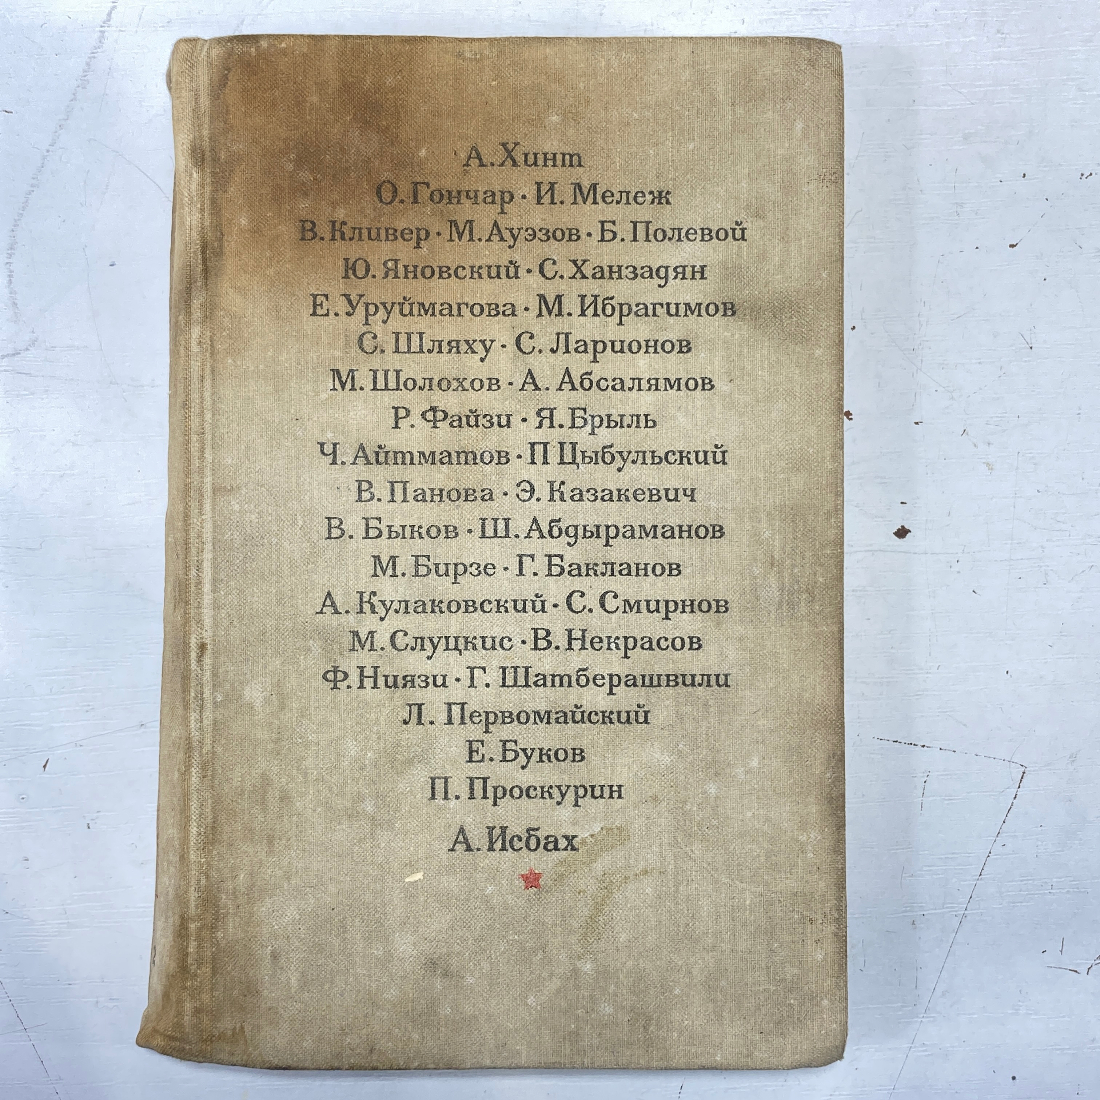 А. Хинт
О. Гончар · И. Мележ
В. Кливер · М. Ауэзов · Б. Полевой
Ю. Яновский · С. Ханзадян
Е. Уруймагова · М. Ибрагимов
С. Шляху · С. Ларионов
М. Шолохов · А. Абсалямов
Р. Файзи · Я. Брыль
Ч. Айтматов · П Цыбульский
В. Панова · Э. Казакевич
В. Быков · Ш. Абдыраманов
М. Бирзе · Г. Бакланов
А. Кулаковский · С. Смирнов
М. Слуцкис · В. Некрасов
Ф. Ниязи · Г. Шатберашвили
Л. Первомайский
Е. Буков
П. Проскурин
А. Исбах